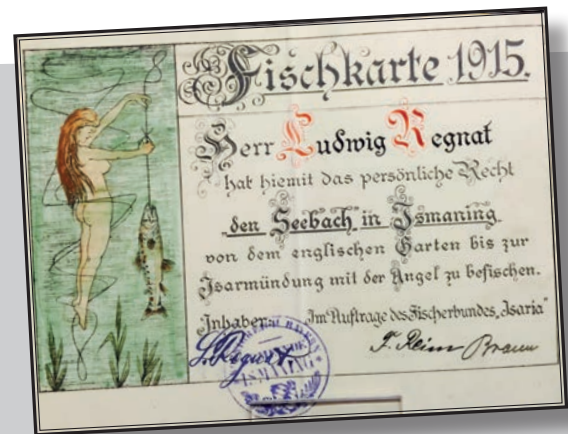 Fischkarte 1915.
Herr Ludwig Regnat
hat hiemit das persönliche Recht
den Seebach in Ismaning
von dem englischen Garten bis zur
Isarmündung mit der Angel zu befischen.
Inhaber: Im Auftrage des Fischerbundes „Isaria"
L. Regnat
Braun
ISMANING